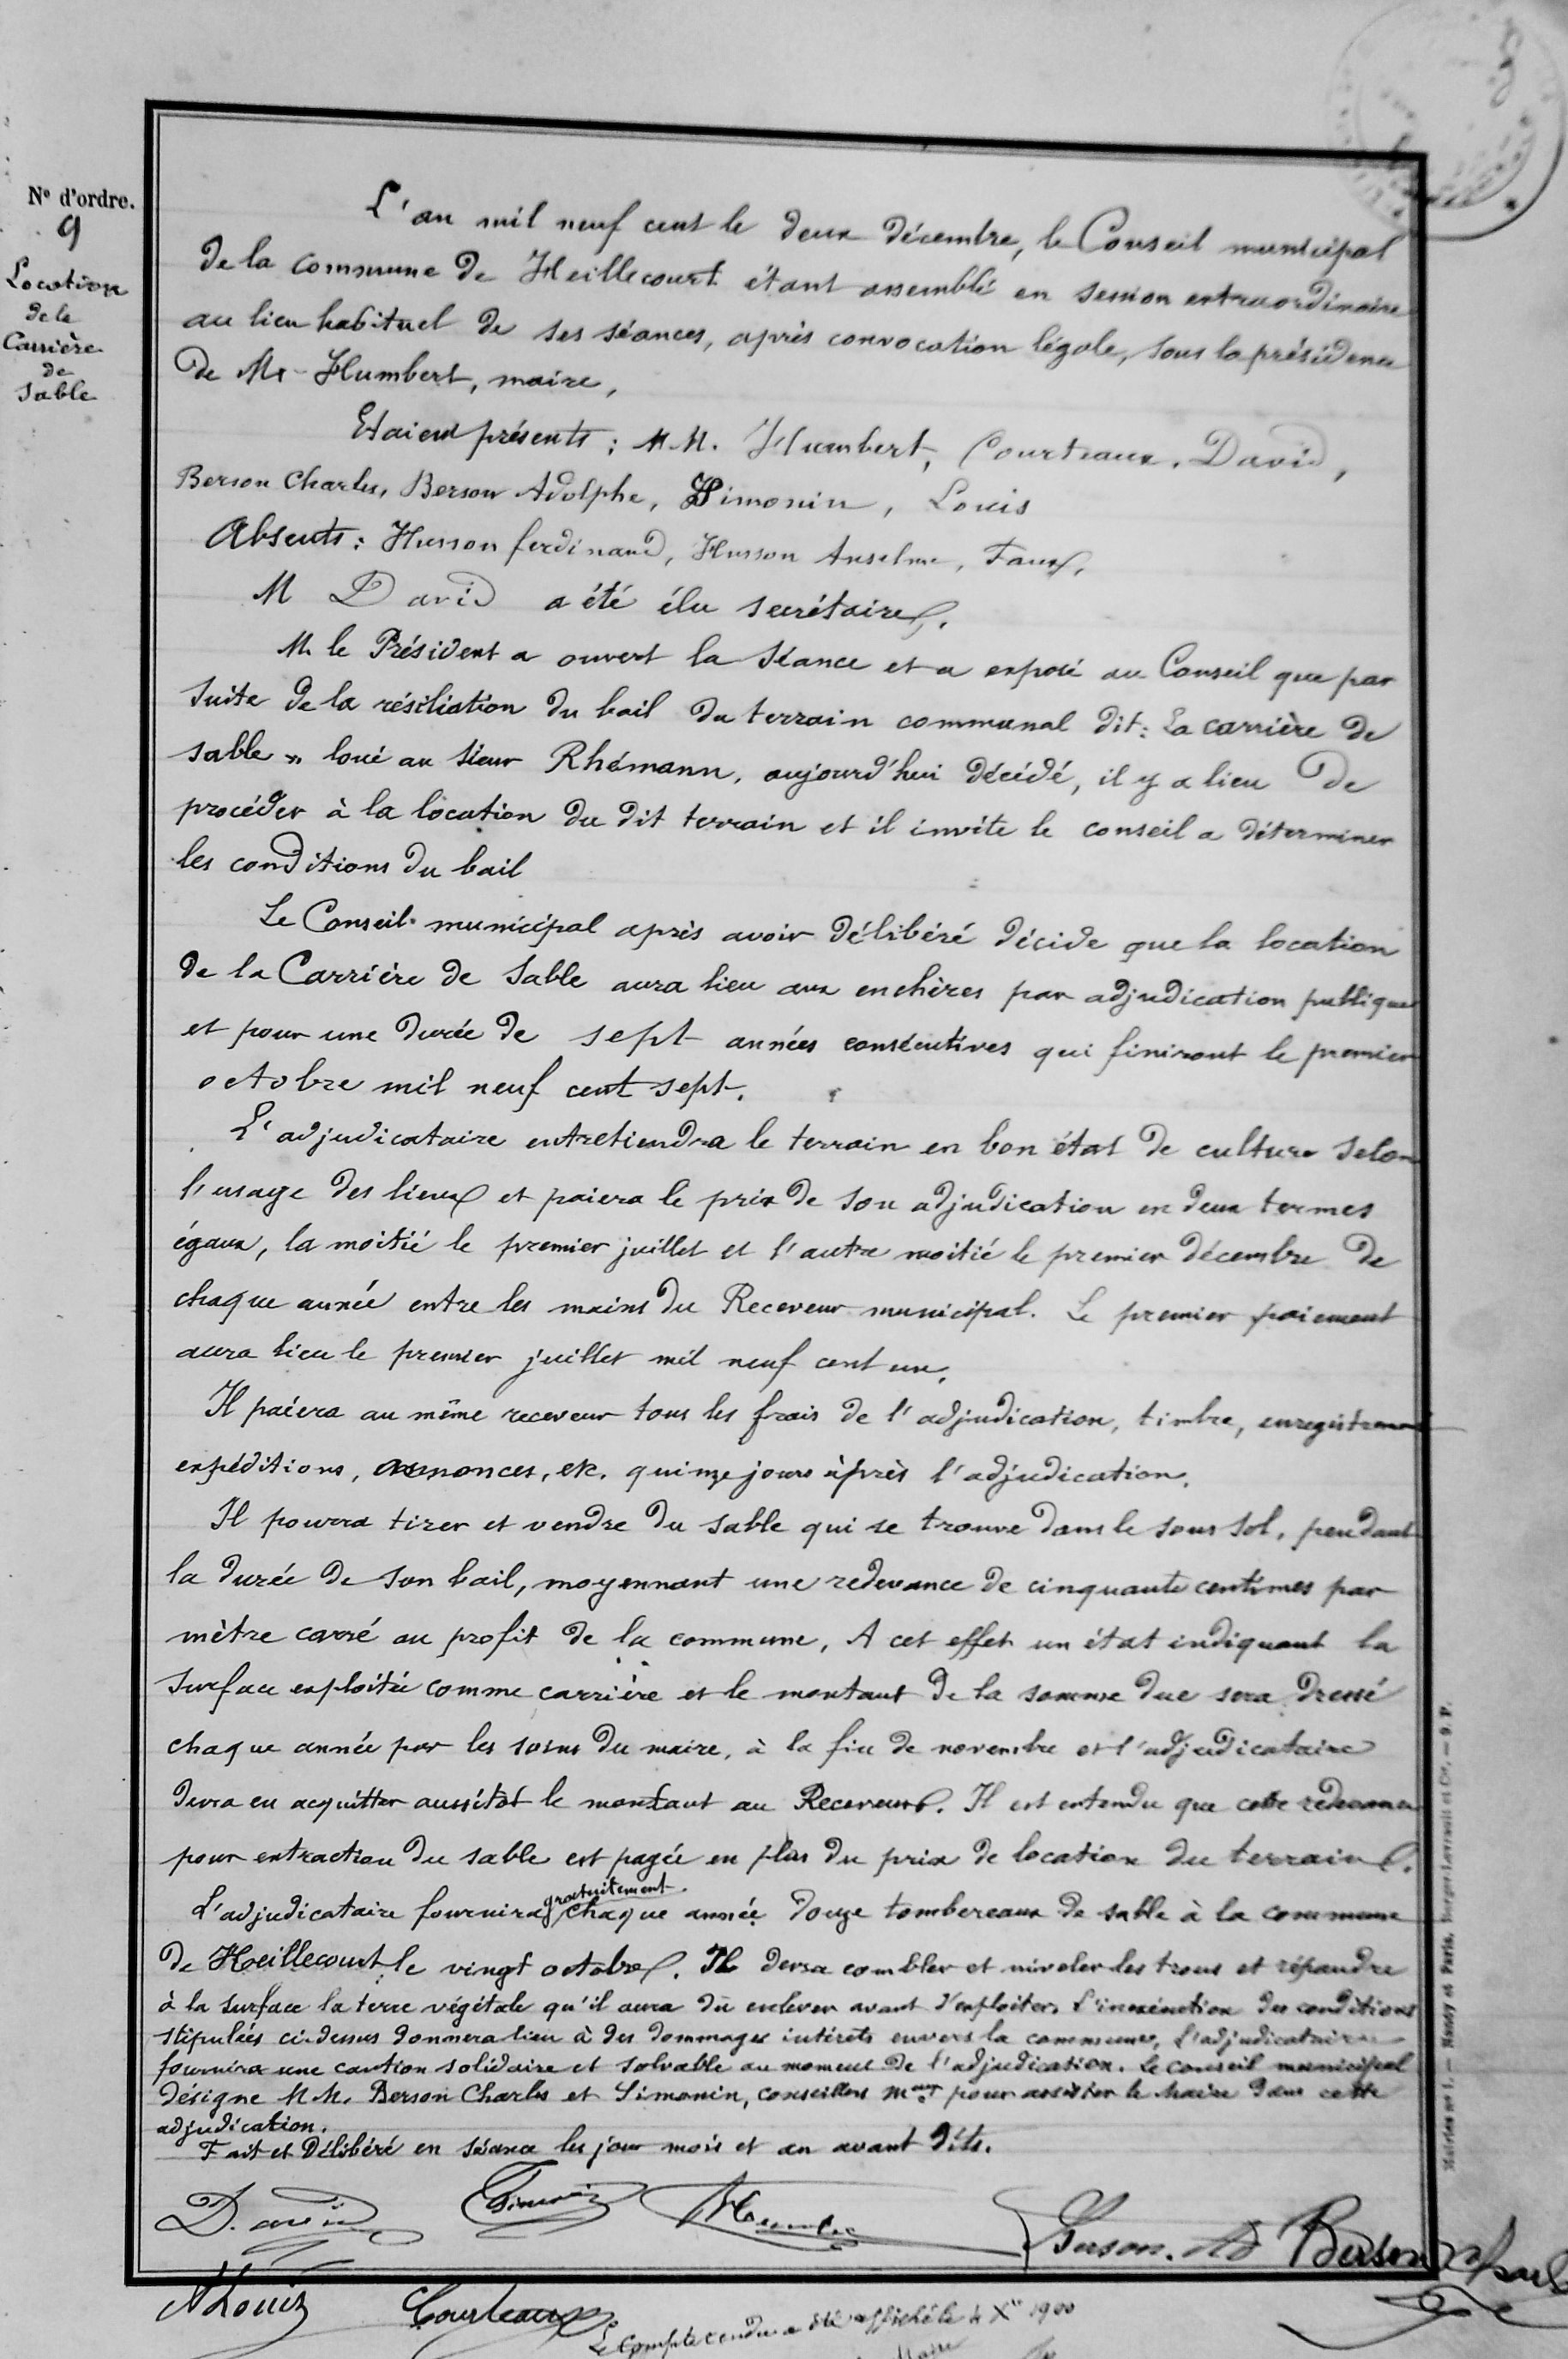 N° d'ordre.
9
Location
de la
Carrière
de
Sable
L'an mil neuf cent le deux décembre, le Conseil municipal
de la commune de Heillecourt étant assemblé en session extraordinaire
au lieu habituel de ses séances, après convocation légale, sous la présidence
de Mr Humbert, maire,
Etaient présents : M.M. Humbert, Courteaux, David,
Berson Charles, Berson Adolphe, Simonin, Louis
Absents : Husson ferdinand, Husson Anselme, Faux,
M David a été élu secrétaire.
M. le Président a ouvert la séance et a exposé au Conseil que par
suite de la résiliation du bail du terrain communal dit : La carrière de
sable " loué au sieur Rhémann, aujourd'hui décédé, il y a lieu de
procéder à la location du dit terrain et il invite le conseil a déterminer
les conditions du bail
Le Conseil municipal après avoir délibéré décide que la location
de la Carrière de Sable aura lieu aux enchères par adjudication publique
et pour une durée de sept années consécutives qui finiront le premier
octobre mil neuf cent sept.
L'adjudicataire entretiendra le terrain en bon état de culture selon
l'usage des lieux et paiera le prix de son adjudication en deux termes
égaux, la moitié le premier juillet et l'autre moitié le premier décembre de
chaque année entre les mains du Receveur municipal. Le premier paiement
aura lieu le premier juillet mil neuf cent un.
Il paiera au même receveur tous les frais de l'adjudication, timbre, enregistrement
expéditions, annonces, etc. quinze jours après l'adjudication.
Il pourra tirer et vendre du sable qui se trouve dans le sous sol, pendant
la durée de son bail, moyennant une redevance de cinquante centimes par
mètre carré au profit de la commune, A cet effet un état indiquant la
surface exploitée comme carrière et le montant de la somme due sera dressé
chaque année par les soins du maire, à la fin de novembre et l'adjudicataire
devra en acquitter aussitôt le montant au Receveur. Il est entendu que cette redevance
pour extraction du sable est payée en plus du prix de location du terrain.
L'adjudicataire fournira gratuitement chaque année douze tombereaux de sable à la commune
de Heillecourt le vingt octobre. Il devra combler et niveler les trous et répandre
à la surface la terre végétale qu'il aura dû enlever avant d'exploiter. L'inexécution des conditions
stipulées ci-dessus donnera lieu à des dommages intérêts envers la commune, L'adjudicataire
fournira une caution solidaire et solvable au moment de l'adjudication. Le conseil municipal
désigne M.M. Berson Charles et Simonin, conseillers maux pour assister le Maire dans cette
adjudication.
Fait et Délibéré en séance les jour mois et an avant dits.
David Simonin Humbert Berson. Ad Berson Charles
A Louis Courteaux
Le compte rendu a été affiché le 4 Xbre 1900
Maire
Nancy et Paris, Berger-Levrault et Cie. — 9. P.